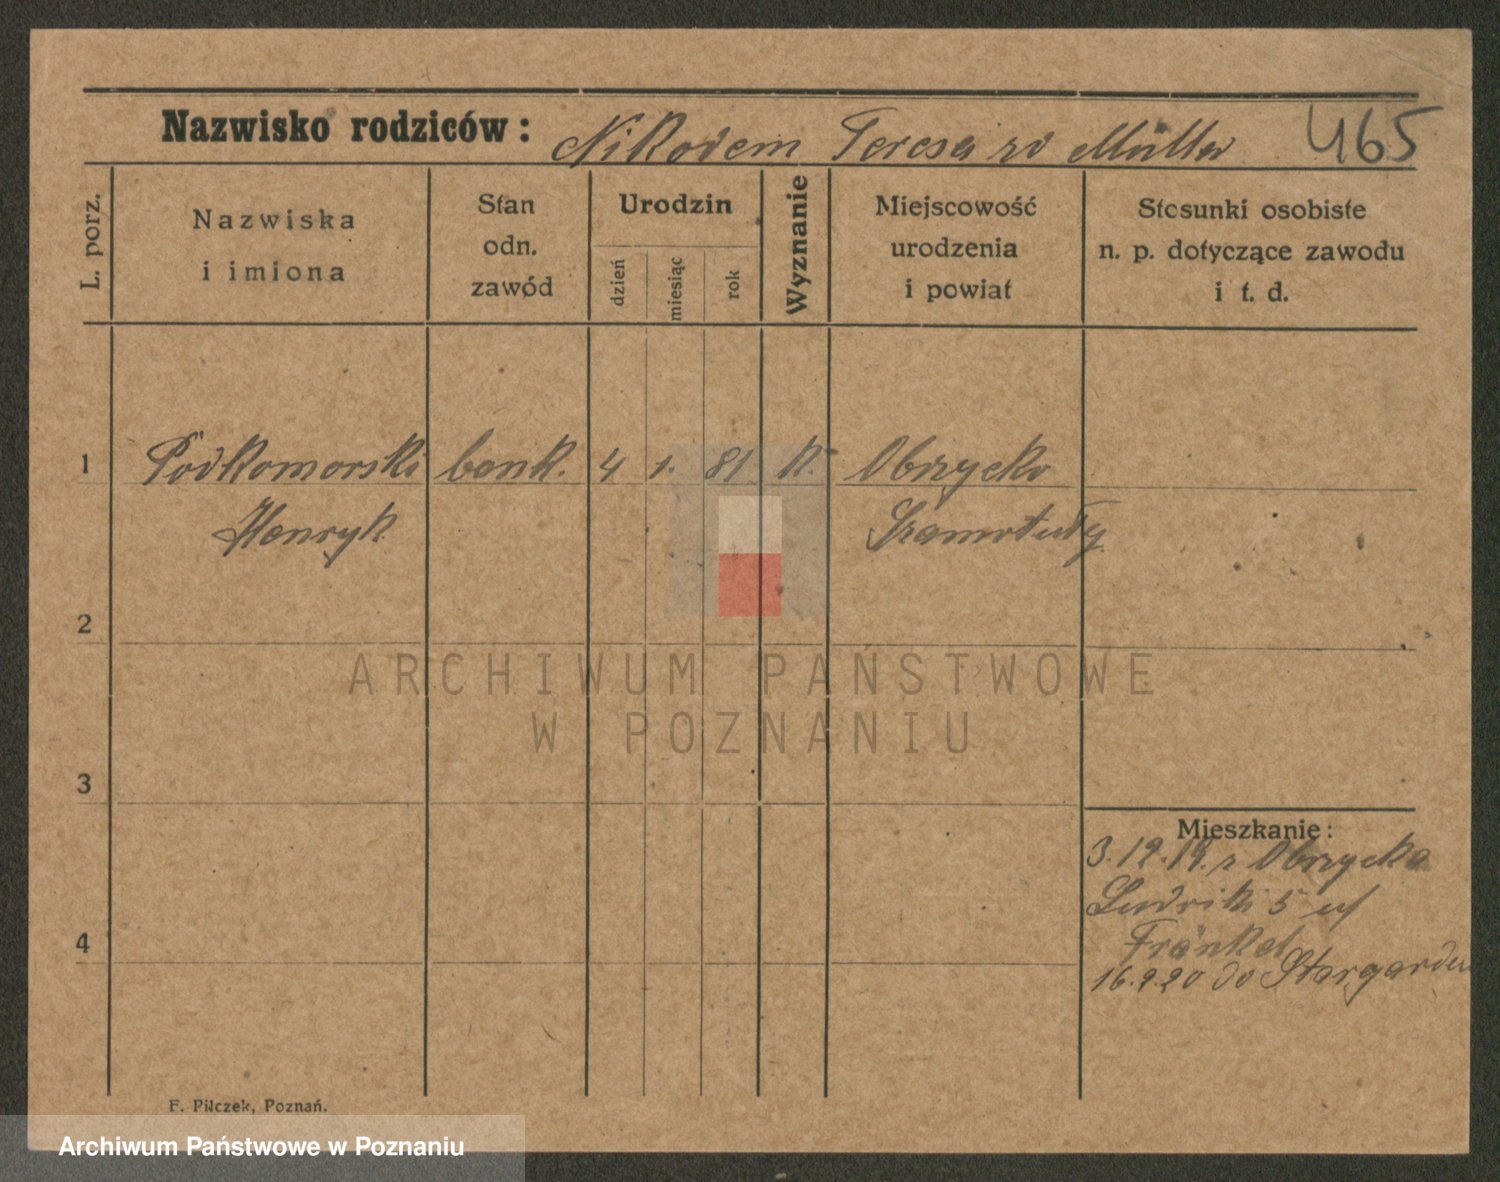 Nazwisko rodziców: Nikodem Teresa zd Müller 465
L. porz.
Nazwiska
i imiona
Stan
odn.
zawód
Urodzin
dzień
miesiąc
rok
Wyznanie
Miejscowość
urodzenia
i powiat
Stosunki osobiste
n. p. dotyczące zawodu
i t. d.
1 Podkomorski bank. 4 1. 81 k. Obrzycko
Henryk Szamotuły
2
ARCHIWUM PAŃSTWOWE
W POZNANIU
3
Mieszkanie:
3.12.19. z Obrzycka
5
Fränkel
4
16.2.20 do Stargardu
F. Pilczek, Poznań.
Archiwum Państwowe w Poznaniu